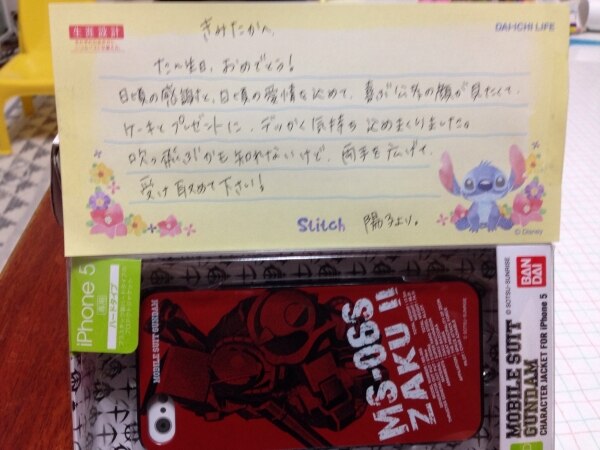 生涯設計
DAI-ICHI LIFE
きみたかさん
たん生日、おめでとう!
日頃の感謝と、日頃の愛情を込めて、喜ぶ公孝の顔が見たくて、
ケーキとプレゼントに、デッカく気持ち込めまくりました。
吹っ飛ぶかも知れないけど、両手を広げて、
受け取めて下さい!
Stitch
陽子より。
© Disney
iPhone 5
専用
ハードタイプ
MOBILE SUIT GUNDAM
MS-06S
ZAKU II
BAN
DAI
© SOTSU・SUNRISE
MOBILE SUIT
GUNDAM
CHARACTER JACKET FOR iPhone 5